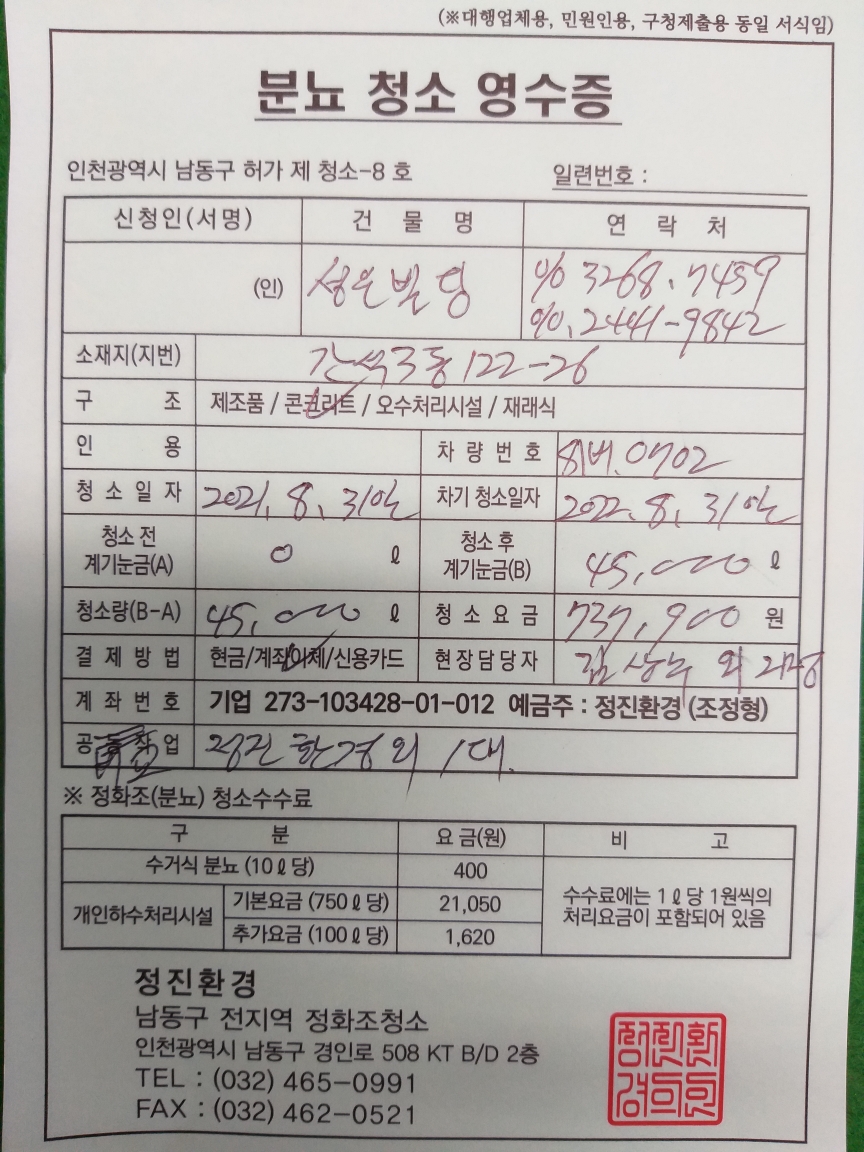 (※대행업체용, 민원인용, 구청제출용 동일 서식임)
분뇨 청소 영수증
인천광역시 남동구 허가 제 청소-8 호 일련번호 :
신청인(서명) 건 물 명 연 락 처
(인) 성은빌딩 010 3268.7459
010.2441-9842
소재지(지번) 간석3동 122-26
구 조 제조품 / 콘크리트 / 오수처리시설 / 재래식
인 용 차 량 번 호 81버.0702
청 소 일 자 2021. 8. 31일 차기 청소일자 2022. 8. 31일
청소 전 계기눈금(A) 0 ℓ 청소 후 계기눈금(B) 45,000 ℓ
청소량(B-A) 45,000 ℓ 청 소 요 금 737,900 원
결 제 방 법 현금/계좌이체/신용카드 현장담당자 김상누 외 리명
계 좌 번 호 기업 273-103428-01-012 예금주 : 정진환경 (조정형)
공동작업 정진환경외 1대.
※ 정화조(분뇨) 청소수수료
구 분 요 금(원) 비 고
수거식 분뇨 (10ℓ당) 400
개인하수처리시설 기본요금 (750ℓ당) 21,050
추가요금 (100ℓ당) 1,620
수수료에는 1ℓ당 1원씩의
처리요금이 포함되어 있음
정진환경
남동구 전지역 정화조청소
인천광역시 남동구 경인로 508 KT B/D 2층
TEL : (032) 465-0991
FAX : (032) 462-0521